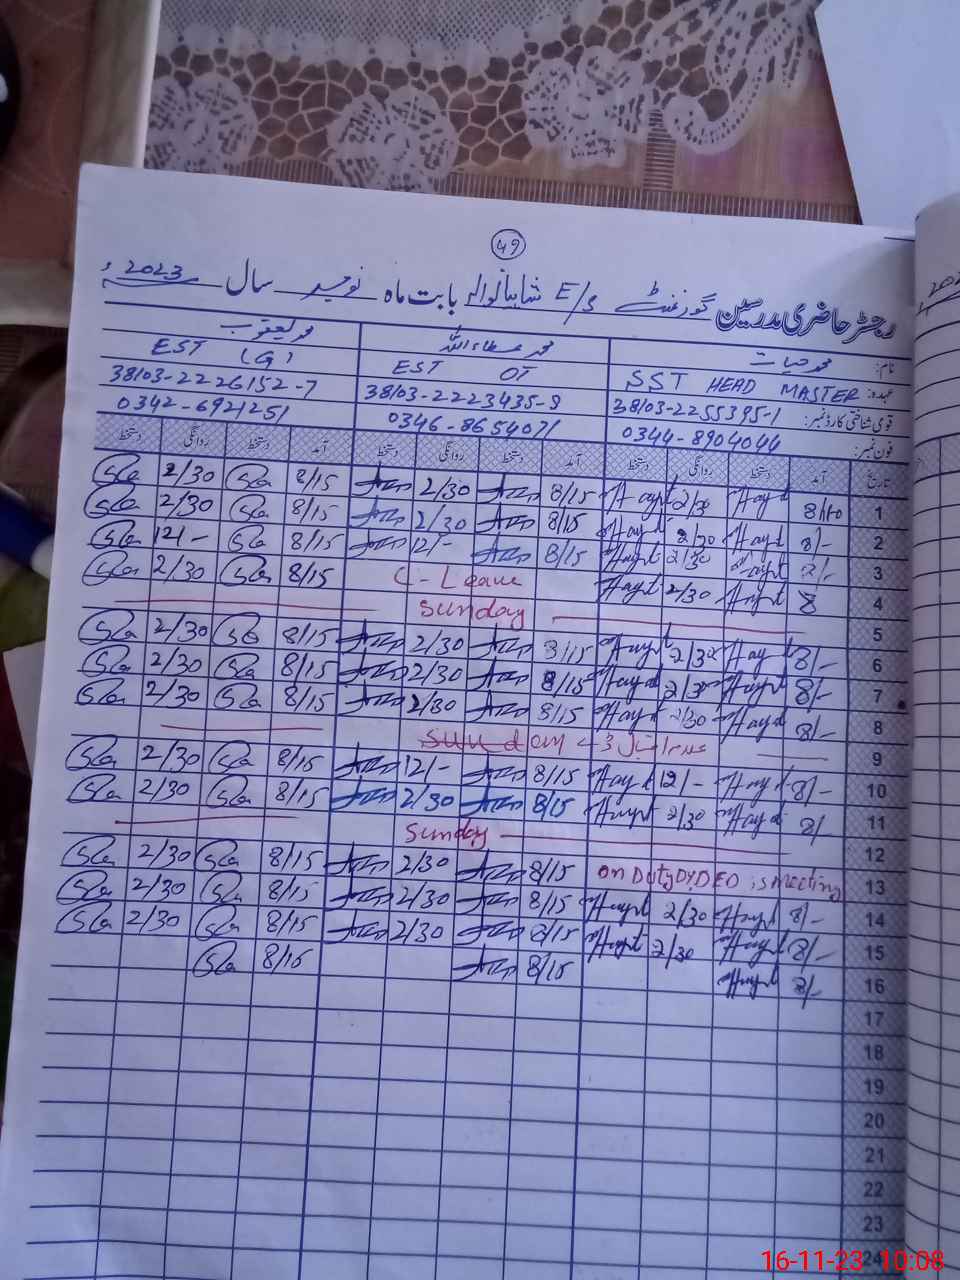 49
رجسٹر حاضری مدرسین گورنمنٹ E/S شاہانوالہ بابت ماہ نومبر سال 2023ء
نام: محمد حیات محمد عطاء اللہ محمد یعقوب
عہدہ: SST HEAD MASTER EST OT EST (G)
قومی شناختی کارڈ نمبر: 38103-2255395-1 38103-2223435-9 38103-2226152-7
فون نمبر: 0344-8904044 0346-8654071 0342-6921251
تاریخ آمد دستخط روانگی دستخط آمد دستخط روانگی دستخط آمد دستخط روانگی دستخط
1 Hayat 2/30 Hayat 8/15 2/30 8/15 2/30
2 8/- Hayat 2/30 Hayat 8/15 2/30 8/15 2/30
3 Hayat 2/30 Hayat 8/15 12/- 8/15 12/-
4 8 Hayat 2/30 Hayat C-Leave 8/15 2/30
5 Sunday
6 8/- Hayat 2/30 Hayat 8/15 2/30 8/15 2/30
7 8/- Hayat 2/30 Hayat 8/15 2/30 8/15 2/30
8 8/- Hayat 2/30 Hayat 8/15 2/30 8/15 2/30
9
10 8/- Hayat 12/- Hayat 8/15 12/- 8/15 2/30
11 8/- Hayat 2/30 Hayat 8/15 2/30 8/15 2/30
12 Sunday
13 on Duty DYDEO is meeting 8/15 2/30 8/15 2/30
14 8/- Hayat 2/30 Hayat 8/15 2/30 8/15 2/30
15 8/- Hayat 2/30 Hayat 8/15 2/30 8/15 2/30
16 8/- Hayat 8/15 8/15
17
18
19
20
21
22
23
24
16-11-23 10:08